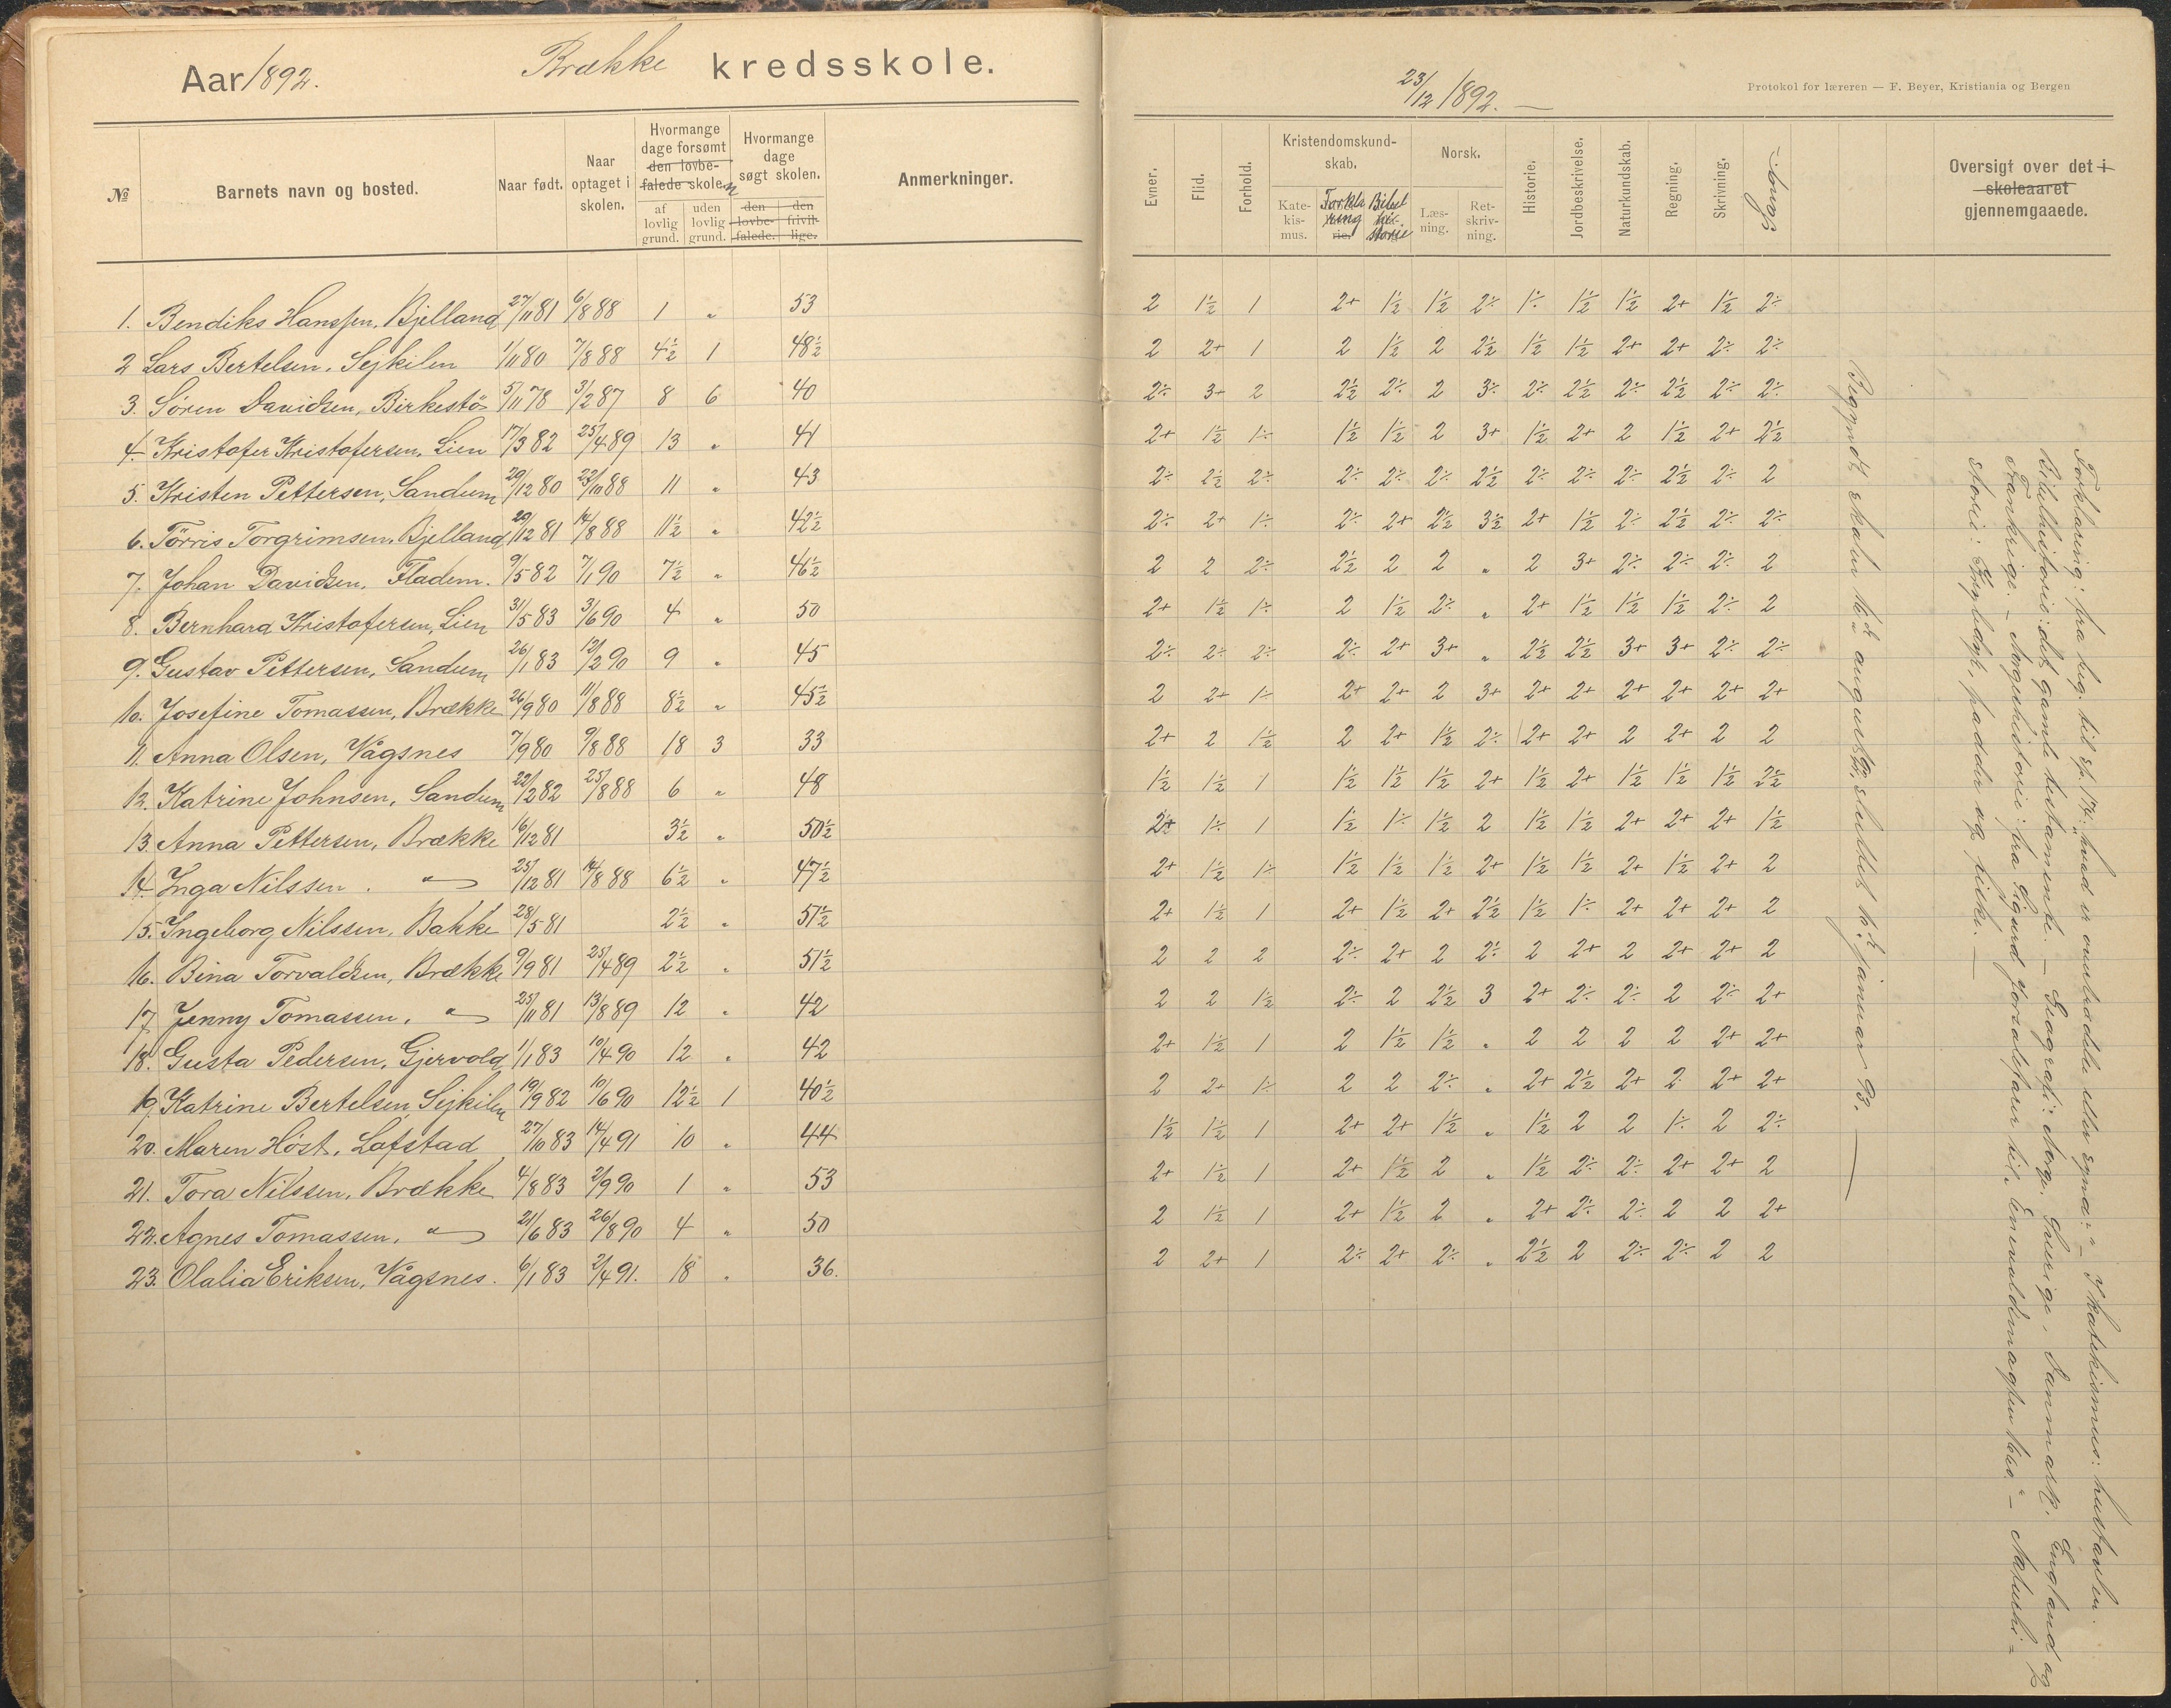 Aar 1892.
Brække kredsskole.
23/12 1892. —
Protokol for læreren — F. Beyer, Kristiania og Bergen
№ | Barnets navn og bosted. | Naar født. | Naar optaget i skolen. | Hvormange dage forsømt den lovbefalede skolen | Hvormange dage søgt skolen. | Anmerkninger.
af lovlig grund. | uden lovlig grund. | den lovbefalede. | den frivillige.
Evner. | Flid. | Forhold. | Kristendomskundskab. | Norsk. | Historie. | Jordbeskrivelse. | Naturkundskab. | Regning. | Skrivning. | Sang. | Oversigt over det i skoleaaret gjennemgaaede.
Katekismus. | Forklaring | Bibelhistorie | Læsning. | Retskrivning.
1. Bendiks Hanssen, Bjelland 27/11 81 6/8 88 1 „ 53 2 1½ 1 2+ 1½ 1½ 2÷ 1÷ 1½ 1½ 2+ 1½ 2÷
2 Lars Bertelsen, Sejkilen 1/11 80 7/8 88 4½ 1 48½ 2 2+ 1 2 1½ 2 2½ 1½ 1½ 2+ 2+ 2÷ 2÷
3. Søren Davidsen, Birkestö 5/11 78 3/2 87 8 6 40 2÷ 3+ 2 2½ 2÷ 2 3÷ 2÷ 2½ 2÷ 2½ 2÷ 2÷
4. Kristofer Kristofersen, Lien 17/3 82 25/4 89 13 „ 41 2+ 1½ 1÷ 1½ 1½ 2 3+ 1½ 2+ 2 1½ 2+ 2½
5. Kristen Pettersen, Sandum 20/12 80 22/10 88 11 „ 43 2÷ 2½ 2÷ 2÷ 2÷ 2÷ 2½ 2÷ 2÷ 2÷ 2½ 2÷ 2
6. Törris Torgrimsen, Bjelland 20/12 81 14/8 88 11½ „ 42½ 2÷ 2+ 1÷ 2÷ 2+ 2½ 3½ 2+ 1½ 2÷ 2½ 2÷ 2÷
7. Johan Davidsen, Fladem. 9/5 82 7/1 90 7½ „ 46½ 2 2 2÷ 2½ 2 2 „ 2 3+ 2÷ 2÷ 2÷ 2
8. Bernhard Kristofersen, Lien 31/5 83 3/6 90 4 „ 50 2+ 1½ 1÷ 2 1½ 2÷ „ 2+ 1½ 1½ 1½ 2÷ 2
9. Gustav Pettersen, Sandum 26/1 83 12/2 90 9 „ 45 2÷ 2÷ 2÷ 2÷ 2+ 3+ „ 2½ 2½ 3+ 3+ 2÷ 2÷
10. Josefine Tomassen, Brække 26/9 80 11/8 88 8½ „ 45½ 2 2+ 1÷ 2+ 2+ 2 3+ 2+ 2+ 2+ 2+ 2+ 2+
11. Anna Olsen, Vågsnes 7/9 80 9/8 88 18 3 33 2+ 2 1½ 2 2+ 1½ 2÷ 2+ 2+ 2 2+ 2 2
12. Katrine Johnsen, Sandum 22/2 82 25/8 88 6 „ 48 1½ 1½ 1 1½ 1½ 1½ 2+ 1½ 2+ 1½ 1½ 1½ 2½
13. Anna Pettersen, Brække 16/12 81 3½ „ 50½ 2+ 1÷ 1 1½ 1÷ 1½ 2 1½ 1½ 2+ 2+ 2+ 1½
14. Inga Nilssen. „ 25/12 81 14/8 88 6½ „ 47½ 2+ 1½ 1÷ 1½ 1½ 1½ 2+ 1½ 1½ 2+ 1½ 2+ 2
15. Ingeborg Nilssen, Bakke 28/5 81 2½ „ 51½ 2+ 1½ 1 2+ 1½ 2+ 2½ 1½ 1÷ 2+ 2+ 2+ 2
16. Bina Torvaldsen, Brække 9/9 81 25/4 89 2½ „ 51½ 2 2 2 2÷ 2+ 2 2÷ 2 2+ 2 2+ 2+ 2
17. Jenny Tomassen, „ 25/11 81 13/8 89 12 „ 42 2 2 1½ 2÷ 2 2½ 3 2+ 2÷ 2÷ 2 2÷ 2+
18. Gusta Pedersen, Gjervold 1/1 83 10/4 90 12 „ 42 2+ 1½ 1 2 1½ 1½ „ 2 2 2 2 2+ 2+
19. Katrine Bertelsen, Sejkilen 19/9 82 10/6 90 12½ 1 40½ 2 2+ 1÷ 2 2 2÷ „ 2+ 2½ 2+ 2 2+ 2+
20. Maren Höst, Lofstad 27/10 83 14/4 91 10 „ 44 1½ 1½ 1 2+ 2+ 1½ „ 1½ 2 2 1÷ 2 2÷
21. Tora Nilssen, Brække 4/8 83 2/9 90 1 „ 53 2+ 1½ 1 2+ 1½ 2 „ 1½ 2÷ 2÷ 2+ 2+ 2
22. Agnes Tomassen, „ 21/6 83 26/8 90 4 „ 50 2 1½ 1 2+ 1½ 2 „ 2+ 2÷ 2÷ 2 2 2+
23. Olalia Eriksen, Vågsnes. 6/1 83 2/4 91. 18 „ 36. 2 2+ 1 2÷ 2+ 2÷ „ 2½ 2 2÷ 2÷ 2 2
Begyndt skolen 16de august 92, sluttet 16de januar 93. —
Forklaring: fra beg. til sp. 174: „hvad er overtrædelse eller synd." — I katekismus: hustavlen.
Bibelhistorie: det gamle testamente. — Geografi: Norge, Sverige, Danmark, England og
Frankrige. — Norgeshistorie: fra Sigurd Jorsalfarer til „Enevoldsmagten 1660" — Naturhi-
storie: krybdyr, padder og fiske. —